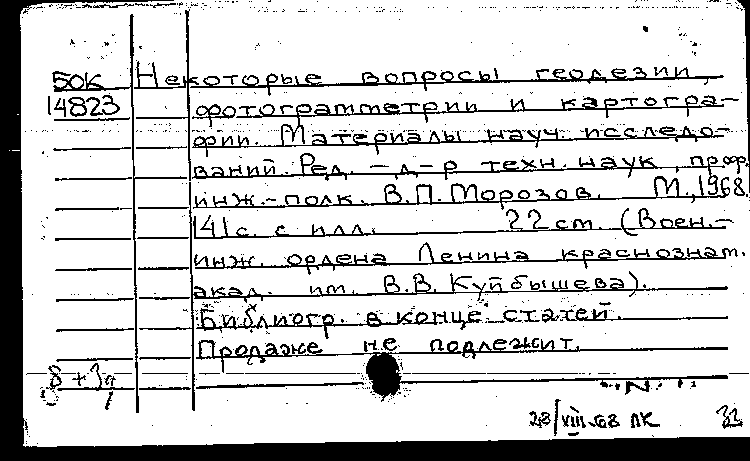 50К Некоторые вопросы геодезии,
14823 фотограмметрии и картогра-
фии. Материалы науч. исследо-
ваний. Ред. - д-р техн. наук, проф.
инж.-полк. В.П. Морозов. М., 1968.
141с. с илл. 22 см. (Воен.-
инж. ордена Ленина краснознам.
акад. им. В.В. Куйбышева).
Библиогр. в конце статей.
Продаже не подлежит.
8 + 3л
"N"
28/VIII-68 ЛК